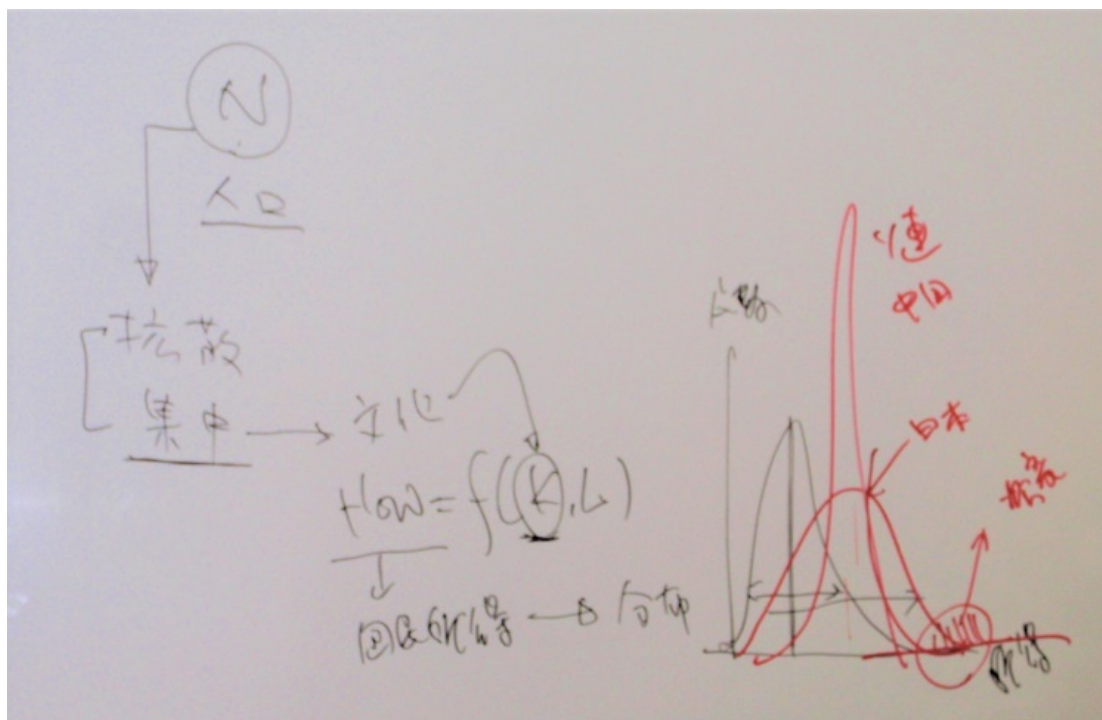 N
人口
拡散
集中
文化
flow = f(K, L)
国民所得
分布
人数
中国
日本
所得